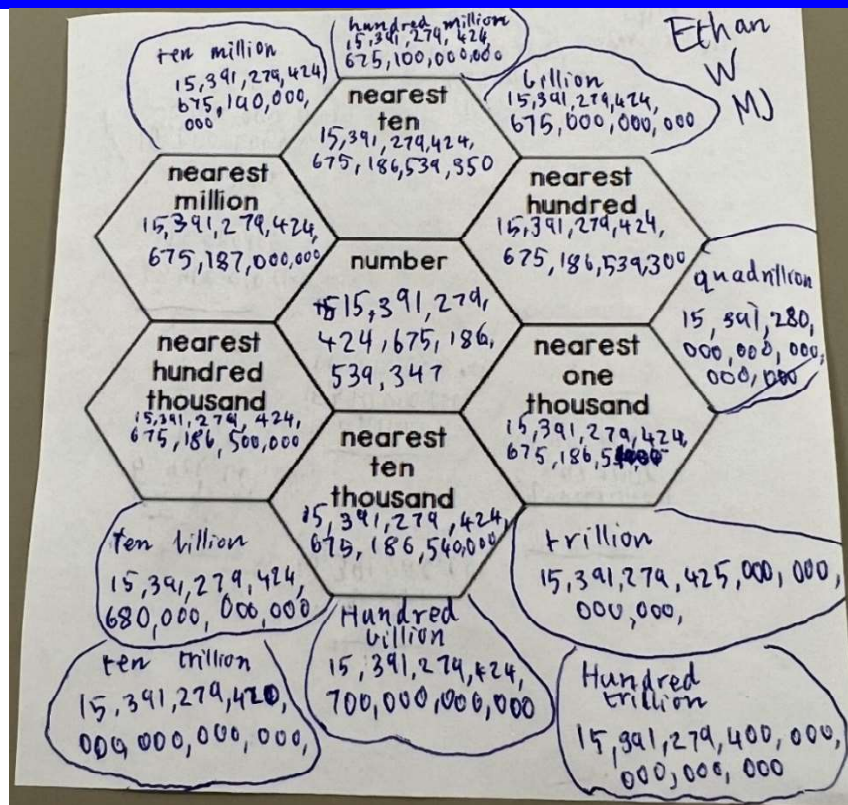 Ethan
W
MJ
ten million
15,391,279,424,
675,190,000,
000
hundred million
15,391,279,424,
675,100,000,000
billion
15,391,279,424,
675,000,000,000
nearest
ten
15,391,279,424,
675,186,539,350
nearest
million
15,391,279,424,
675,187,000,000
nearest
hundred
15,391,279,424,
675,186,539,300
number
15,391,279,
424,675,186,
539,347
quadrillion
15,391,280,
000,000,000,
000,000
nearest
hundred
thousand
15,391,279,424,
675,186,500,000
nearest
one
thousand
15,391,279,424,
nearest
ten
thousand
15,391,279,424,
675,186,540,000
ten billion
15,391,279,424,
680,000,000,000
trillion
15,391,279,425,000,000,
000,000,
Hundred
billion
15,391,279,424,
700,000,000,000
ten trillion
15,391,279,420,
000,000,000,000,
Hundred
trillion
15,391,279,400,000,
000,000,000